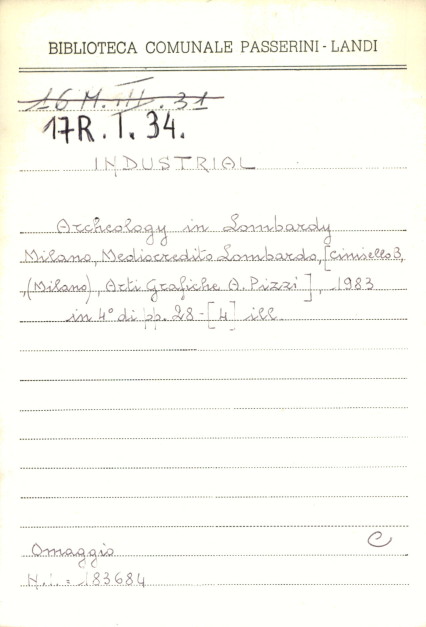 BIBLIOTECA COMUNALE PASSERINI - LANDI
16 M. III. 31
17R. I. 34.
INDUSTRIAL
Archeology in Lombardy
Milano, Mediocredito Lombardo, [Cinisello B,
(Milano), Arti Grafiche A. Pizzi], 1983
in 4° di pp. 28-[4] ill.
C
Omaggio
N.i. = 183684